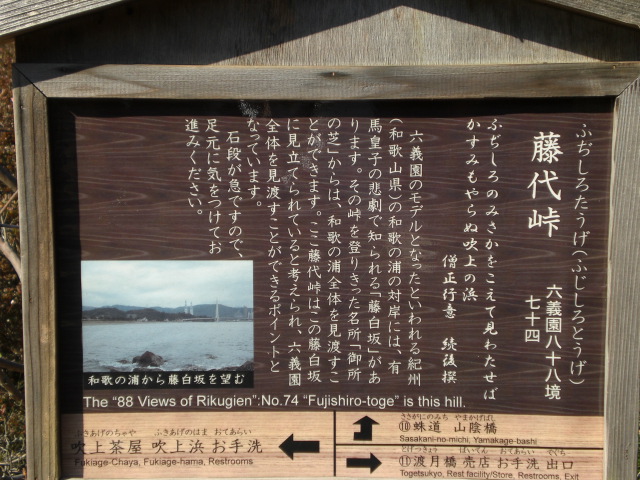 ふぢしろたうげ(ふじしろとうげ)
藤代峠
六義園八十八境
七十四
ふぢしろのみさかをこえて見わたせば
かすみもやらぬ吹上の浜
僧正行意 続後撰
六義園のモデルとなったといわれる紀州
(和歌山県)の和歌の浦の対岸には、有
馬皇子の悲劇で知られる「藤白坂」があ
ります。その峠を登りきった名所「御所
の芝」からは、和歌の浦全体を見渡すこ
とができます。ここ藤代峠はこの藤白坂
に見立てられていると考えられ、六義園
全体を見渡すことができるポイントと
なっています。
石段が急ですので、
足元に気をつけてお
進みください。
和歌の浦から藤白坂を望む
The “88 Views of Rikugien”:No.74 “Fujishiro-toge” is this hill.
ふきあげのちゃや ふきあげのはま おてあらい
吹上茶屋 吹上浜 お手洗
Fukiage-Chaya, Fukiage-hama, Restrooms
ささがにのみち やまかげばし
⑩ 蛛道 山陰橋
Sasakani-no-michi, Yamakage-bashi
とげつきょう ばいてん おてあらい でぐち
⑪ 渡月橋 売店 お手洗 出口
Togetsukyo, Rest facility/Store, Restrooms, Exit